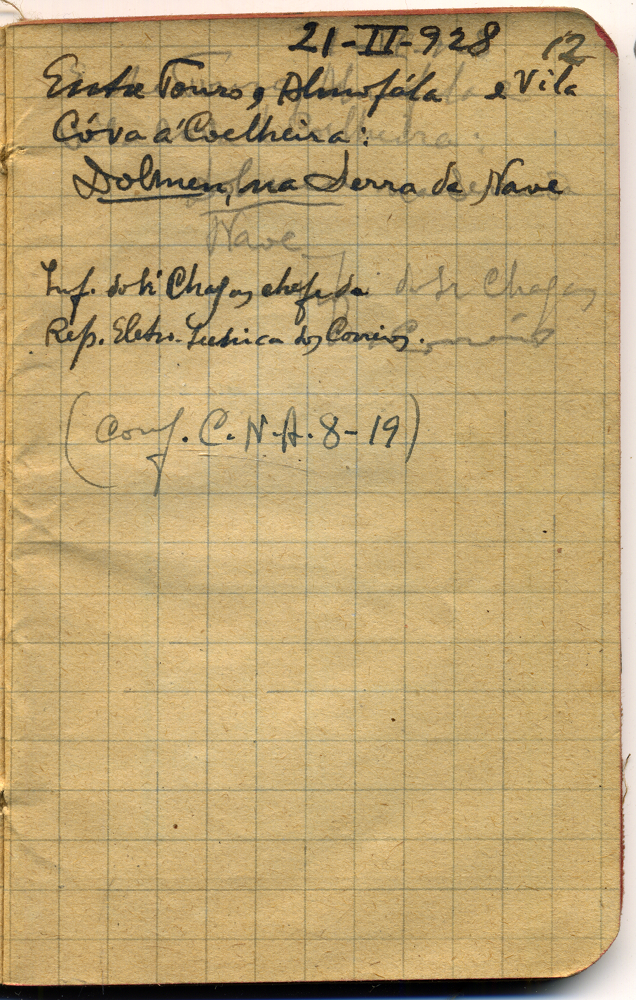 21-II-928 12
Entre Touro, Almofála e Vila
Cóva á Coelheira:
Dolmen, na Serra de Nave
Nave
Inf. do Sr Chagas chefe da do Sr Chagas
Rep. Eletro-Tecnica dos Correios. Correios
(Conf. C.N.A. 8-19)